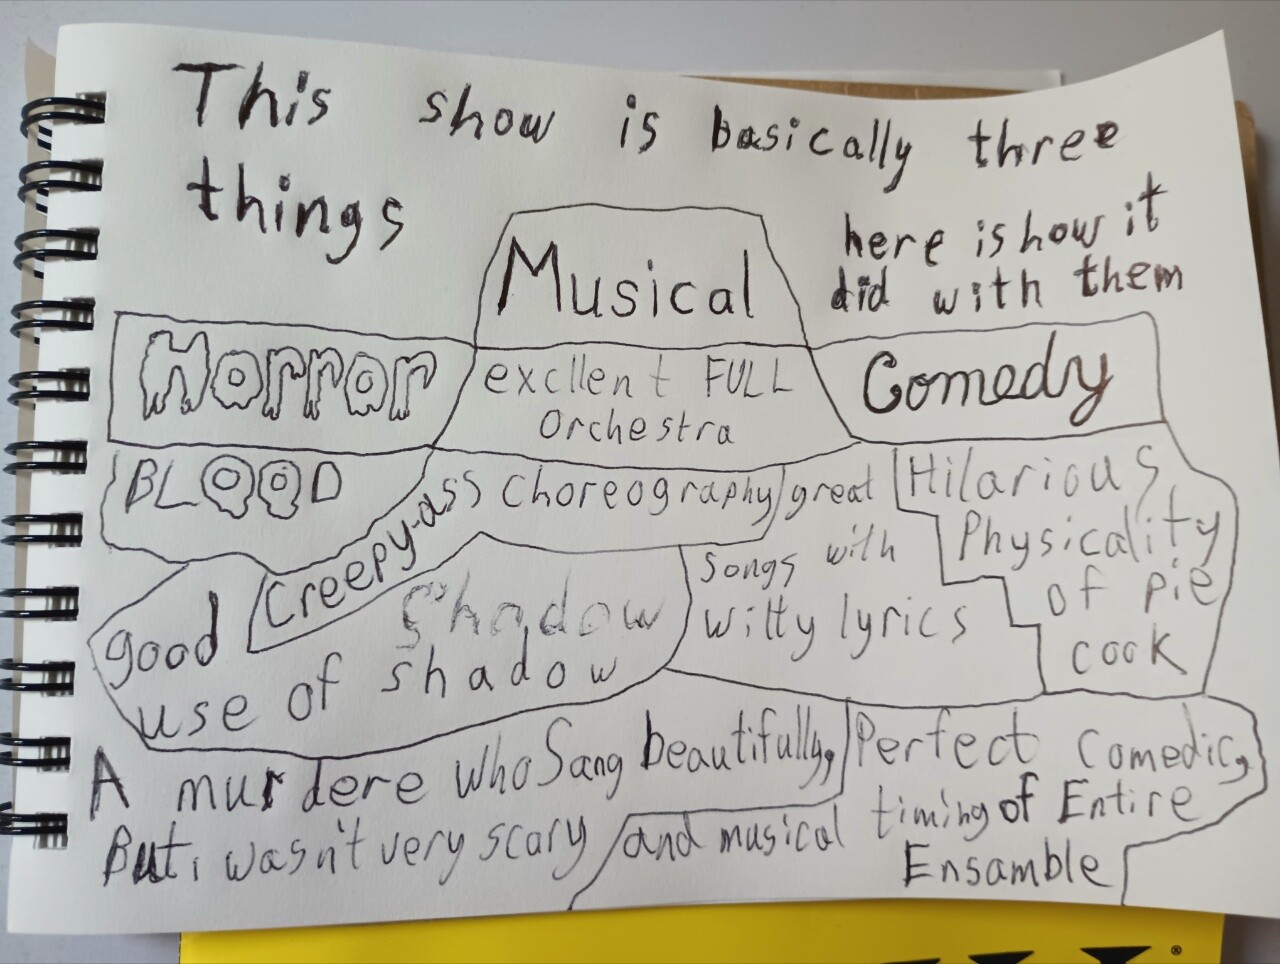 This show is basically three
things
here is how it
did with them
Musical
Horror
Comedy
excllent FULL
Orchestra
BLOOD
Creepy-ass Choreography
great
songs with
witty lyrics
Hilarious
Physicality
of pie
cook
good
shadow
use of shadow
A murdere who Sang beautifully,
But, wasn't very scary
Perfect Comedic,
and musical timing of Entire
Ensamble
®